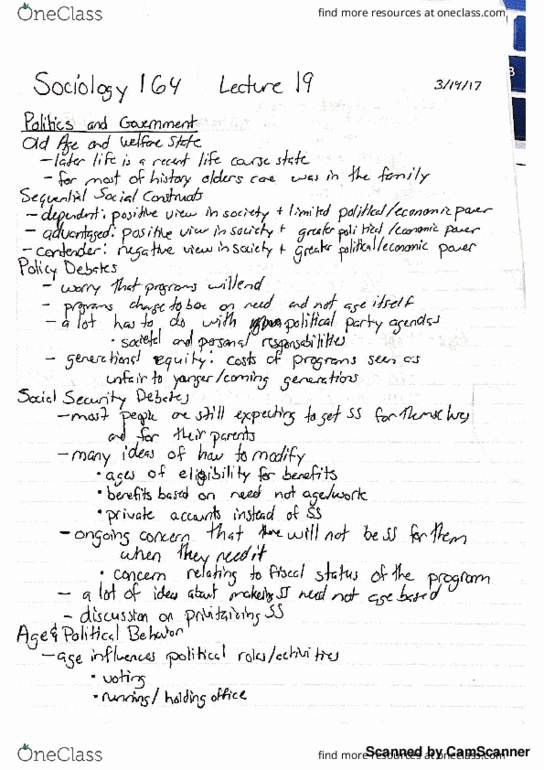 OneClass
find more resources at oneclass.com
Sociology 164 Lecture 19 3/14/17
Politics and Government
Old Age and Welfare State
- later life is a recent life course state
- for most of history elders care was in the family
Sequential Social Constructs
- dependent: positive view in society + limited political/economic power
- advantaged: positive view in society + greater political/economic power
- contender: negative view in society + greater political/economic power
Policy Debates
- worry that programs will end
- programs change to base on need and not age itself
- a lot has to do with political party agendas
• societal and personal responsibilities
- generational equity: costs of programs seen as
unfair to younger/coming generations
Social Security Debates
- most people are still expecting to get SS for themselves
and for their parents
- many ideas of how to modify
• ages of eligibility for benefits
• benefits based on need not age/work
• private accounts instead of SS
- ongoing concern that there will not be SS for them
when they need it
• concern relating to fiscal status of the program
- a lot of ideas about making SS need not age based
- discussion on privitaizing SS
Age & Political Behavior
- age influences political roles/activities
• voting
• running/holding office
OneClass
find more resources at oneclass.com
Scanned by CamScanner